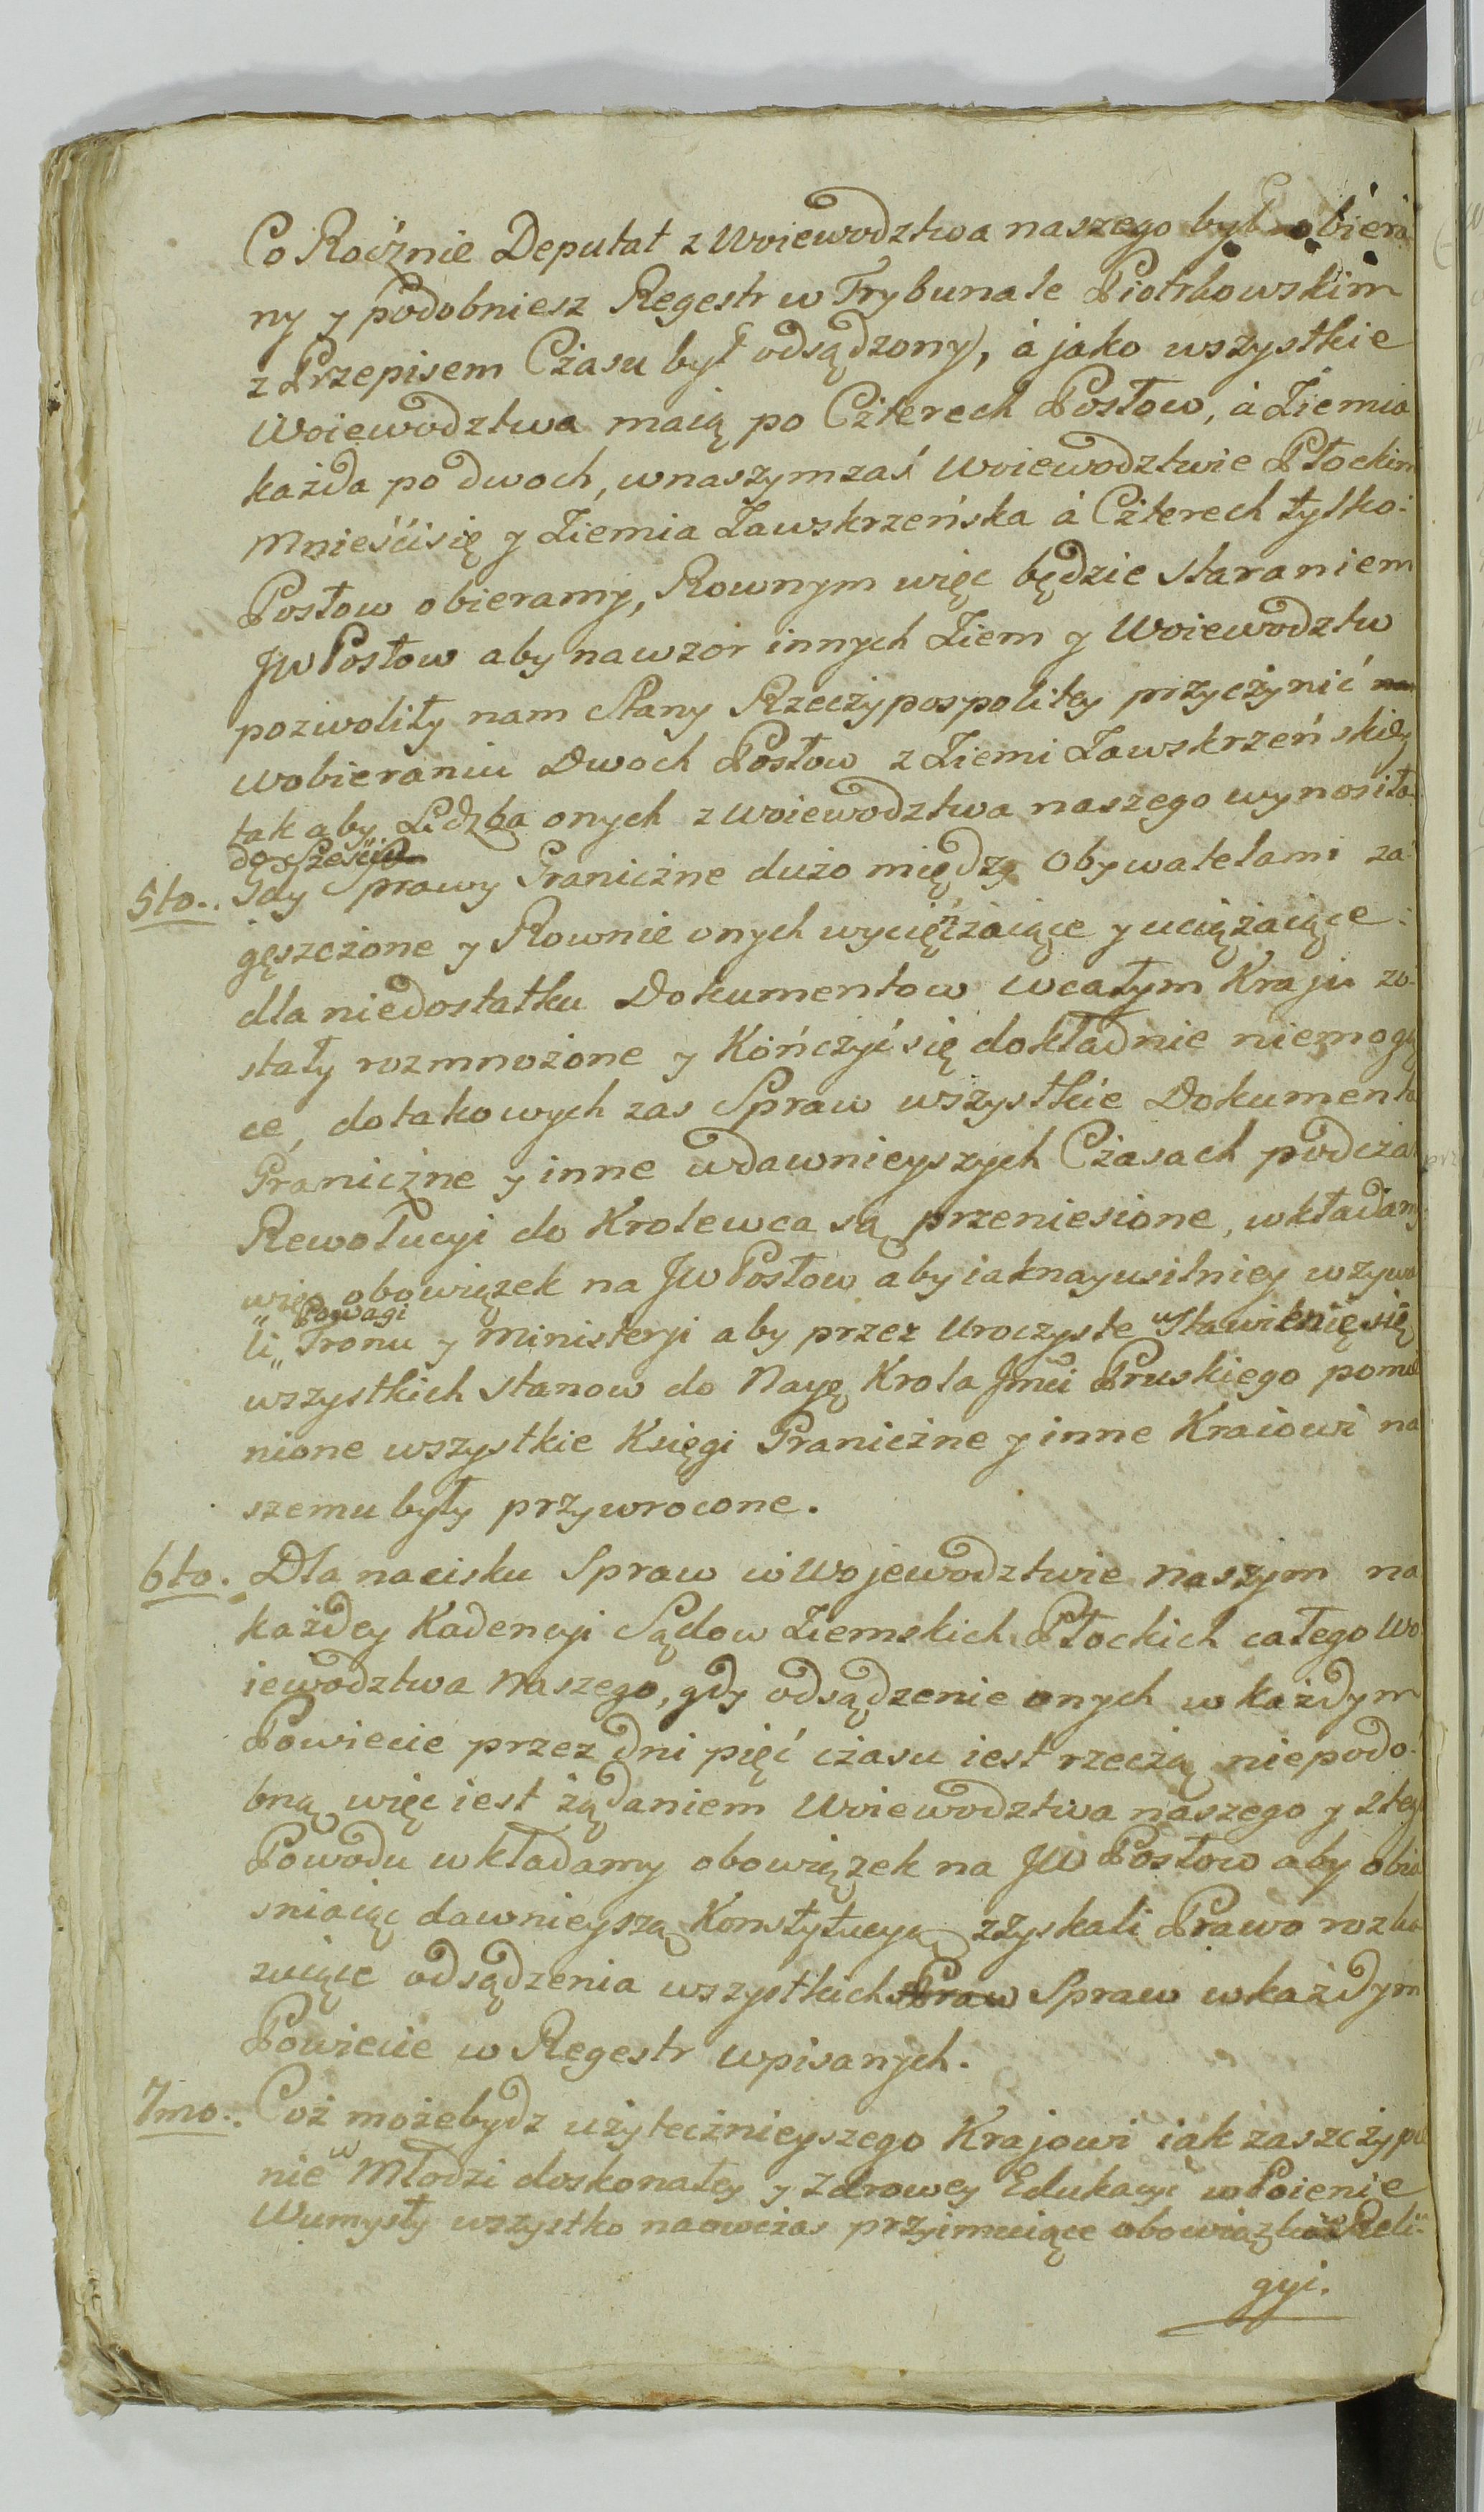 Co Rocżnie Deputat z Woiewodztwa naszego był obiera
ny y podobniesz Regestr w Trybunale Piotrkowskim
z Przepisem Cżasu był odsądzony, á jako wszystkie
Woiewodztwa maią po Czterech Posłow, á Ziemia
każda po dwoch, w naszym zaś Woiewodztwie Płockim
Mnieści się y Ziemia Zawskrzeńska á Czterech tylko
Posłow obieramy, Rownym więc będzie staraniem
JW Posłow aby na wzór innych Ziem y Woiewodztw
pozwoliły nam Stany Rzecżypospolitey przycżynić
w obieraniu Dwoch Posłow z Ziemi Zawskrzeńskiey
tak aby Lidzba onych z Woiewodztwa naszego wynosiła
do Sześciu
5to. Gdy Sprawy Granicżne dużo między Obywatelami za
gęszcżone y Rownie onych wycięńżaiące y uciążaiące
dla niedostatku Dokumentow w całym Kraju zo
stały rozmnożone y Kończyć się dokładnie niemogą
ce, do takowych zas Spraw wszystkie Dokumenta
Granicżne y inne w dawnieyszych Cżasach podcżas
Rewolucyi do Krolewca są przeniesione, wkładamy
więc obowiązek na JW Posłow aby iak nayusilniey wzywa
li Powagi Tronu y Ministeryi aby przez Uroczyste Wstawienię się
wszystkich stanow do Nayę Krola Jmći Pruskiego pomie
nione wszystkie Księgi Granicżne y inne Kraiowi na
szemu były przywrocone.
6to. Dla nacisku Spraw w Wojewodztwie naszym na
każdey Kadencyi Sądow Ziemskich Płockich całego Wo
iewodztwa Naszego, gdy odsądzenie onych w każdym
Powiecie przez dni pięć cżasu iest rzecżą niepodo
bną więc iest żądaniem Woiewodztwa naszego y z tego
Powodu wkładamy obowiązek na JW Posłow aby obia
sniaiąc dawnieyszą Konstytucyą zyskali Prawo rozka
zuiące odsądzenia wszystkich Spraw w każdym
Powiecie w Regestr wpisanych.
7mo. Coż może bydz użytecżnieyszego Krajowi iak zaszczypie
nie w Młodzi doskonałey y zdrowey Edukacyi wpoienie
W umysły wszystko naowcżas przyimuiące obowiązkow Reli
gyi.